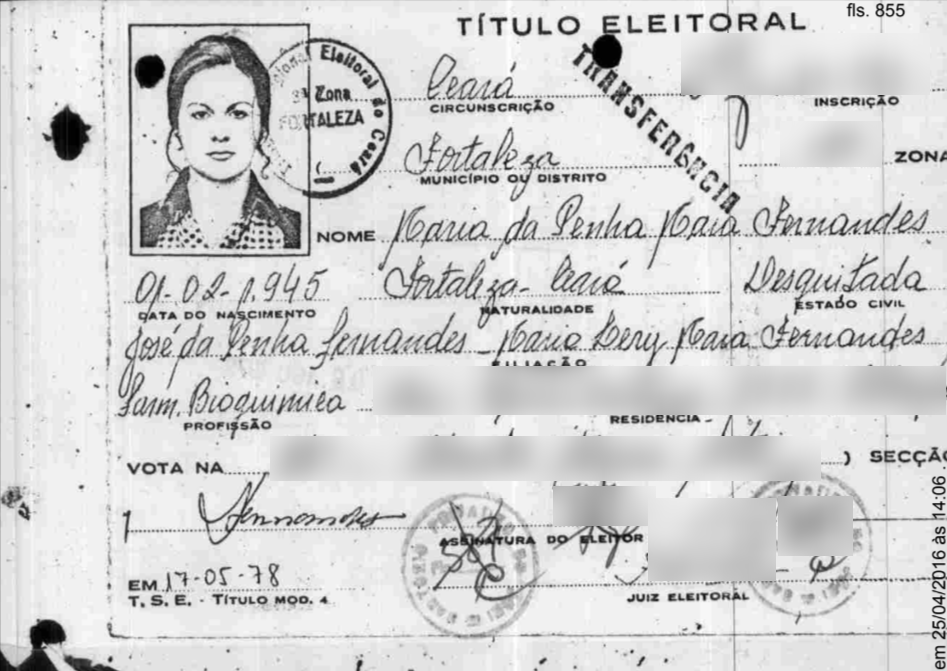 fls. 855
TÍTULO ELEITORAL
TRANSFERÊNCIA
Eleitoral do Ceará
Zona
FORTALEZA
Ceará
CIRCUNSCRIÇÃO
INSCRIÇÃO
Fortaleza
MUNICÍPIO OU DISTRITO
ZONA
NOME Maria da Penha Maia Fernandes
01-02-1.945 Fortaleza - Ceará Desquitada
DATA DO NASCIMENTO NATURALIDADE ESTADO CIVIL
José da Penha Fernandes - Maria Lery Maia Fernandes
FILIAÇÃO
Farm. Bioquimica
PROFISSÃO RESIDENCIA
VOTA NA ) SECÇÃO
Fernandes
ASSINATURA DO ELEITOR
EM 17-05-78
T. S. E. - TÍTULO MOD. 4 JUIZ ELEITORAL
em 25/04/2016 às 14:06 .